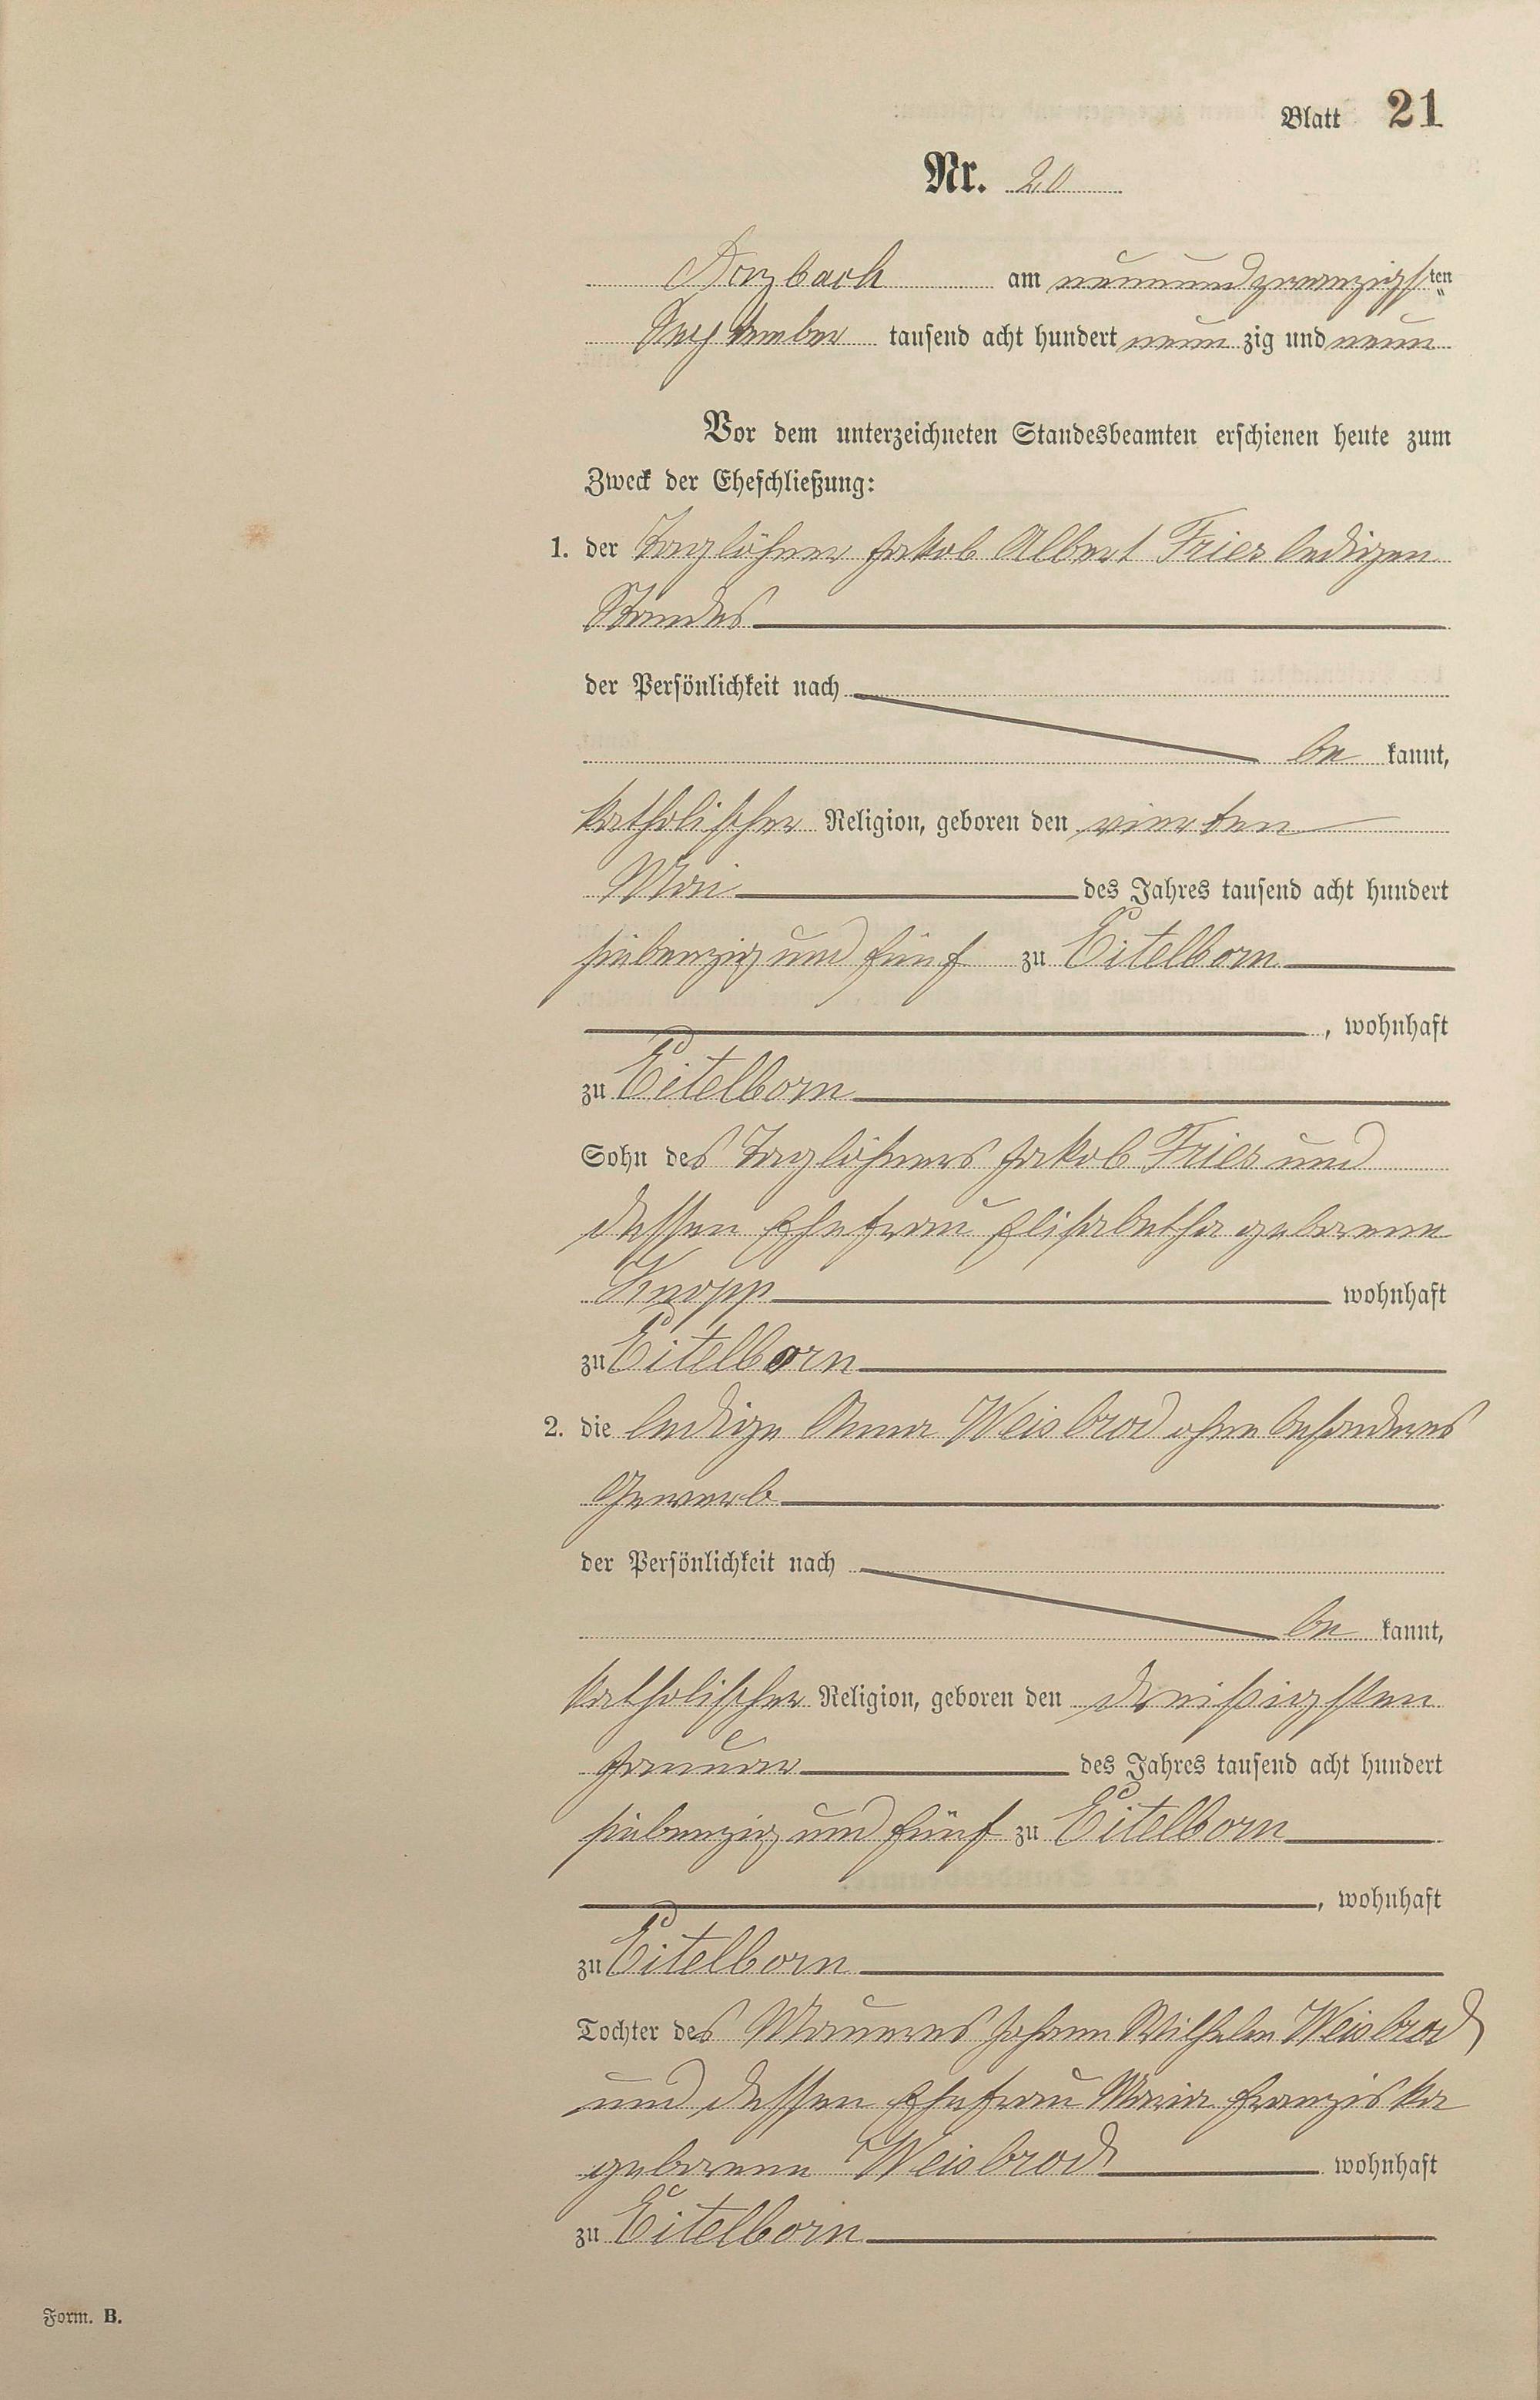 Blatt 21
Nr. 20
Arzbach am neunundzwanzigsten
September tausend acht hundert neun zig und neun
Vor dem unterzeichneten Standesbeamten erschienen heute zum
Zweck der Eheschließung:
1. der Taglöhner Jakob Albert Fries ledigen
Standes
der Persönlichkeit nach
be kannt,
katholischer Religion, geboren den vierten
Mai des Jahres tausend acht hundert
siebenzig und fünf zu Eitelborn
, wohnhaft
zu Eitelborn
Sohn des Taglöhners Jakob Fries und
dessen Ehefrau Elisabetha geborene
Knopp wohnhaft
zu Eitelborn
2. die ledige Anna Weisbrod ohne besonderes
Gewerb
der Persönlichkeit nach
be kannt,
katholischer Religion, geboren den dreißigsten
Januar des Jahres tausend acht hundert
siebenzig und fünf zu Eitelborn
, wohnhaft
zu Eitelborn
Tochter des Maurers Johann Wilhelm Weisbrod
und dessen Ehefrau Maria Franziska
geborene Weisbrod wohnhaft
zu Eitelborn
Form. B.